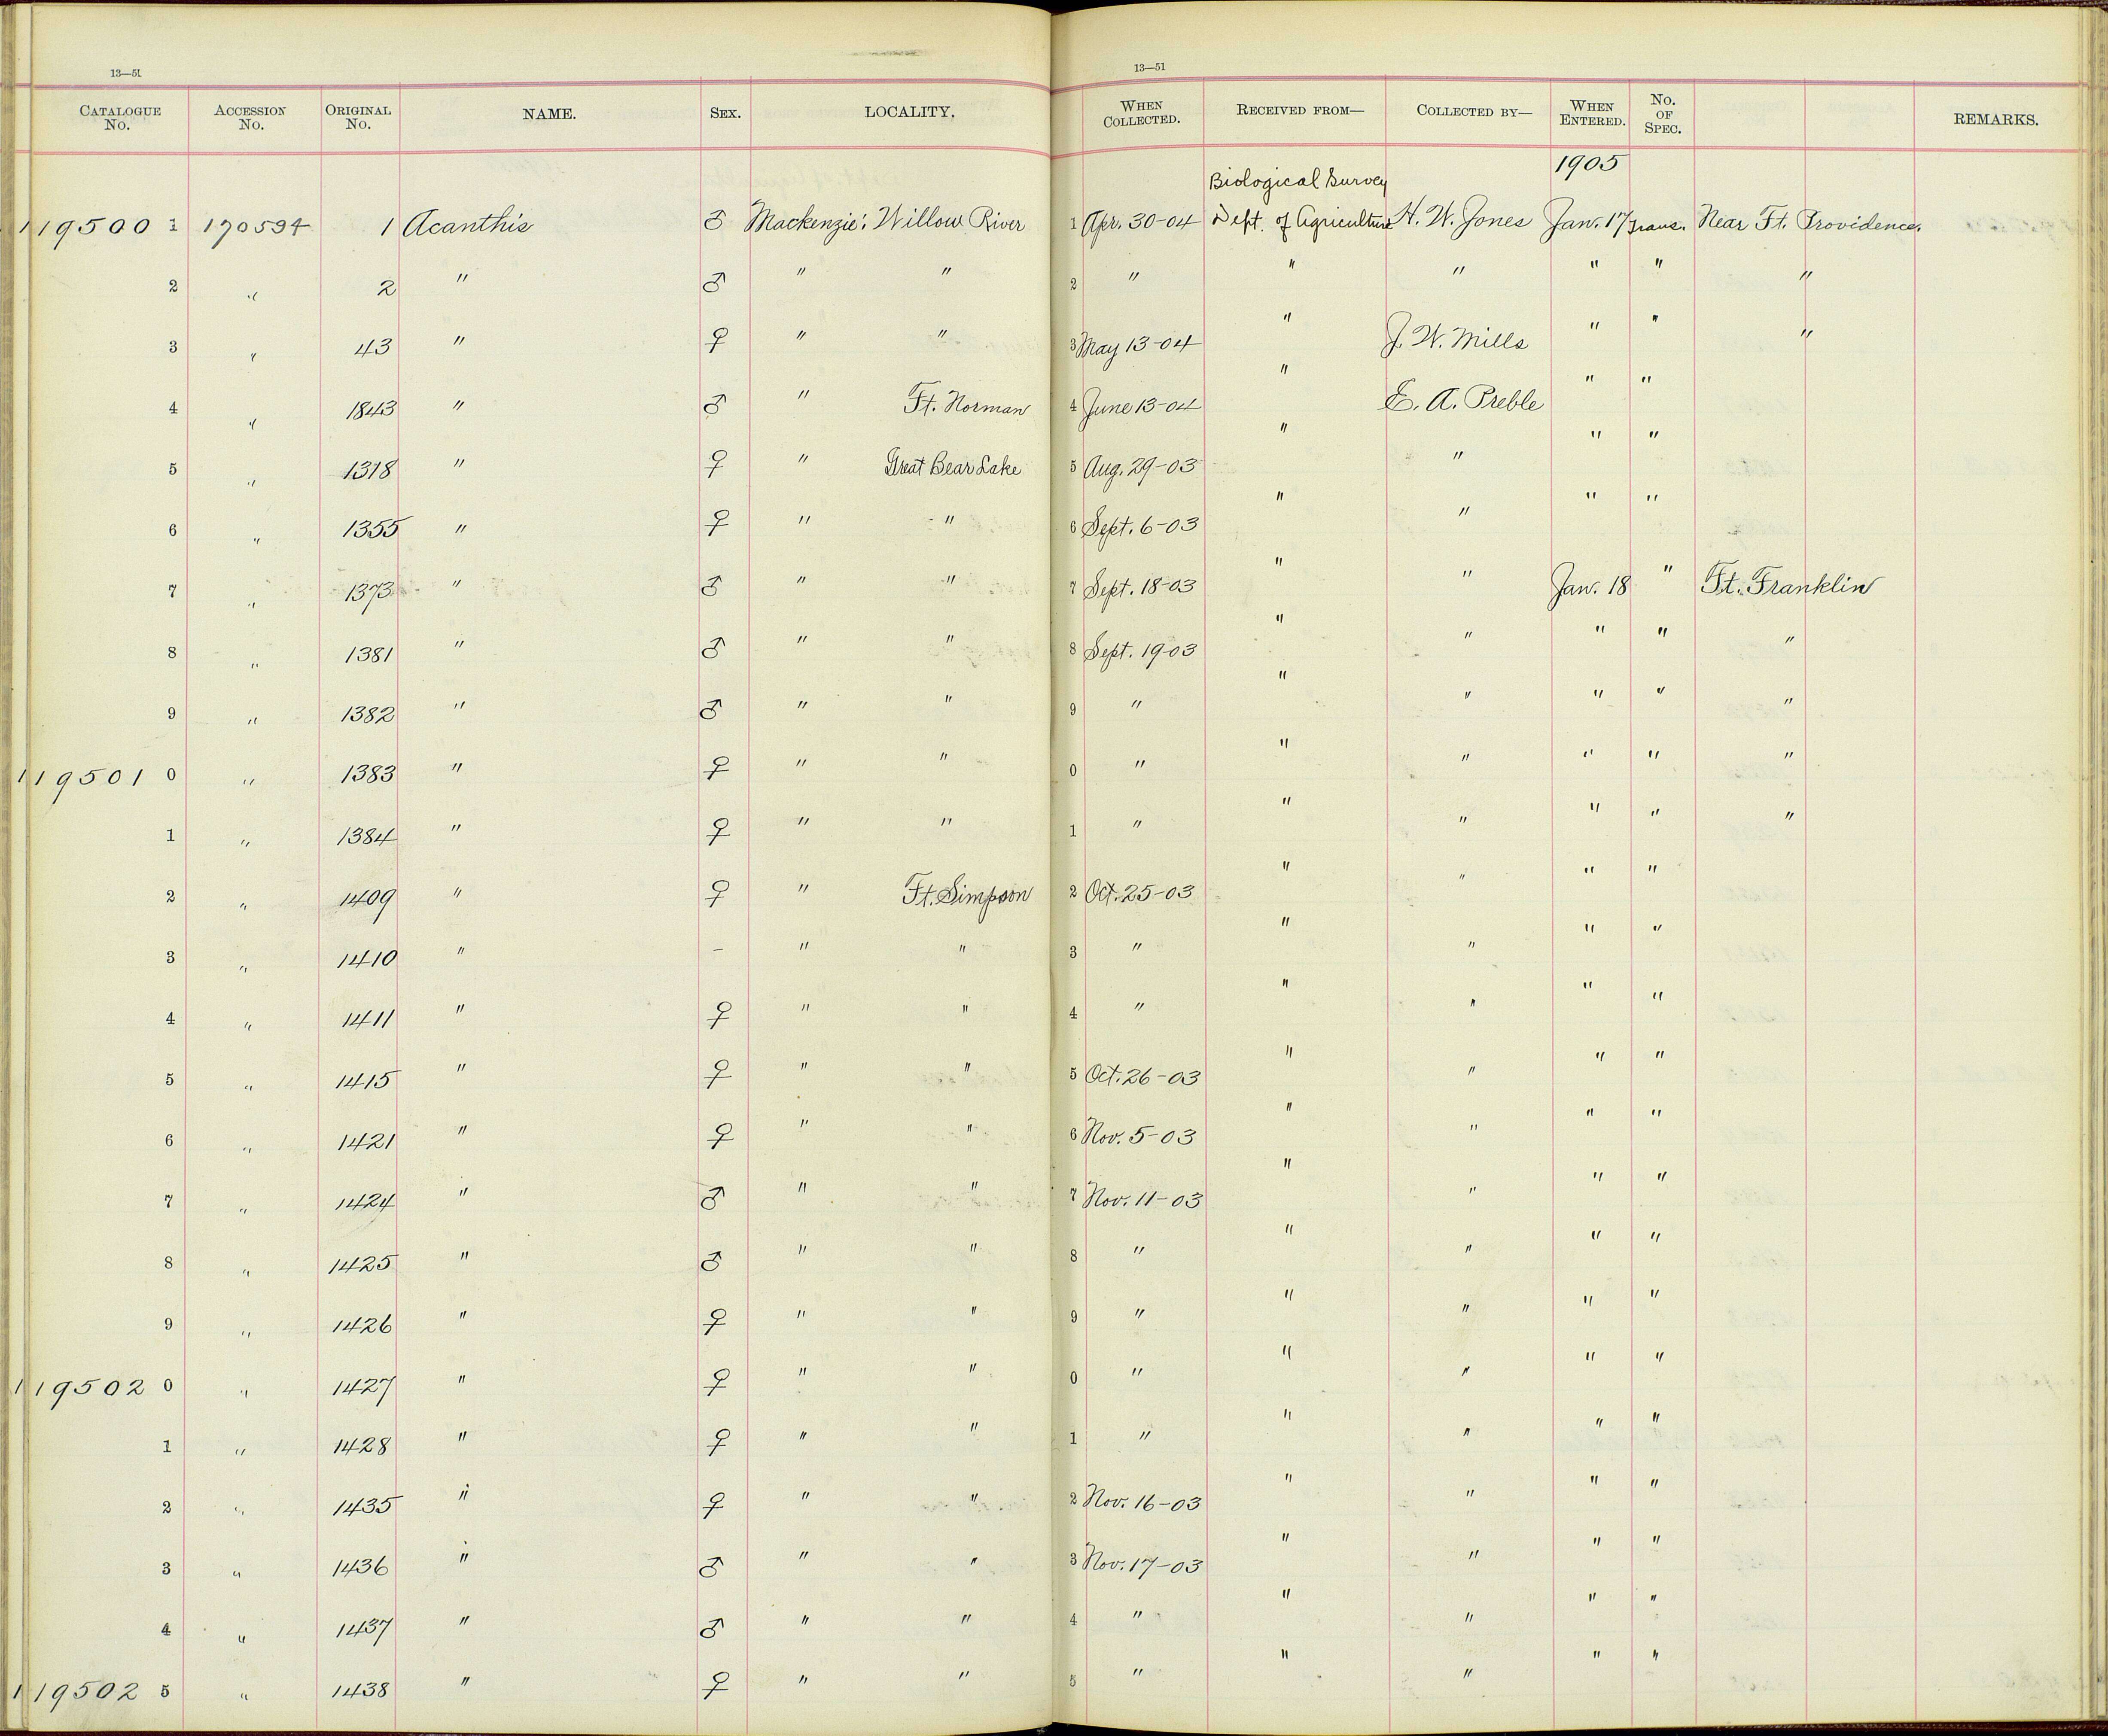 13—51
13—51
CATALOGUE No. ACCESSION No. ORIGINAL No. NAME. SEX. LOCALITY. WHEN COLLECTED. RECEIVED FROM— COLLECTED BY— WHEN ENTERED. No. OF SPEC. REMARKS.
1905
Biological Survey
119500 1 170594 1 Acanthis ♂ Mackenzie: Willow River 1 Apr. 30-04 Dept. of Agriculture H. W. Jones Jan. 17 Trans. Near Ft. Providence.
2 " 2 " ♂ " " 2 " " " " " "
3 " 43 " ♀ " " 3 May 13-04 " J. W. Mills " " "
4 " 1843 " ♂ " Ft. Norman 4 June 13-04 " E. A. Preble " "
5 " 1318 " ♀ " Great Bear Lake 5 Aug. 29-03 " " " "
6 " 1355 " ♀ " " 6 Sept. 6-03 " " " "
7 " 1373 " ♂ " " 7 Sept. 18-03 " " Jan. 18 " Ft. Franklin
8 " 1381 " ♂ " " 8 Sept. 19-03 " " " " "
9 " 1382 " ♂ " " 9 " " " " " "
119501 0 " 1383 " ♀ " " 0 " " " " " "
1 " 1384 " ♀ " " 1 " " " " " "
2 " 1409 " ♀ " Ft. Simpson 2 Oct. 25-03 " " " "
3 " 1410 " – " " 3 " " " " "
4 " 1411 " ♀ " " 4 " " " " "
5 " 1415 " ♀ " " 5 Oct. 26-03 " " " "
6 " 1421 " ♀ " " 6 Nov. 5-03 " " " "
7 " 1424 " ♂ " " 7 Nov. 11-03 " " " "
8 " 1425 " ♂ " " 8 " " " " "
9 " 1426 " ♀ " " 9 " " " " "
119502 0 " 1427 " ♀ " " 0 " " " " "
1 " 1428 " ♀ " " 1 " " " " "
2 " 1435 " ♀ " " 2 Nov. 16-03 " " " "
3 " 1436 " ♂ " " 3 Nov. 17-03 " " " "
4 " 1437 " ♂ " " 4 " " " " "
119502 5 " 1438 " ♀ " " 5 " " " " "